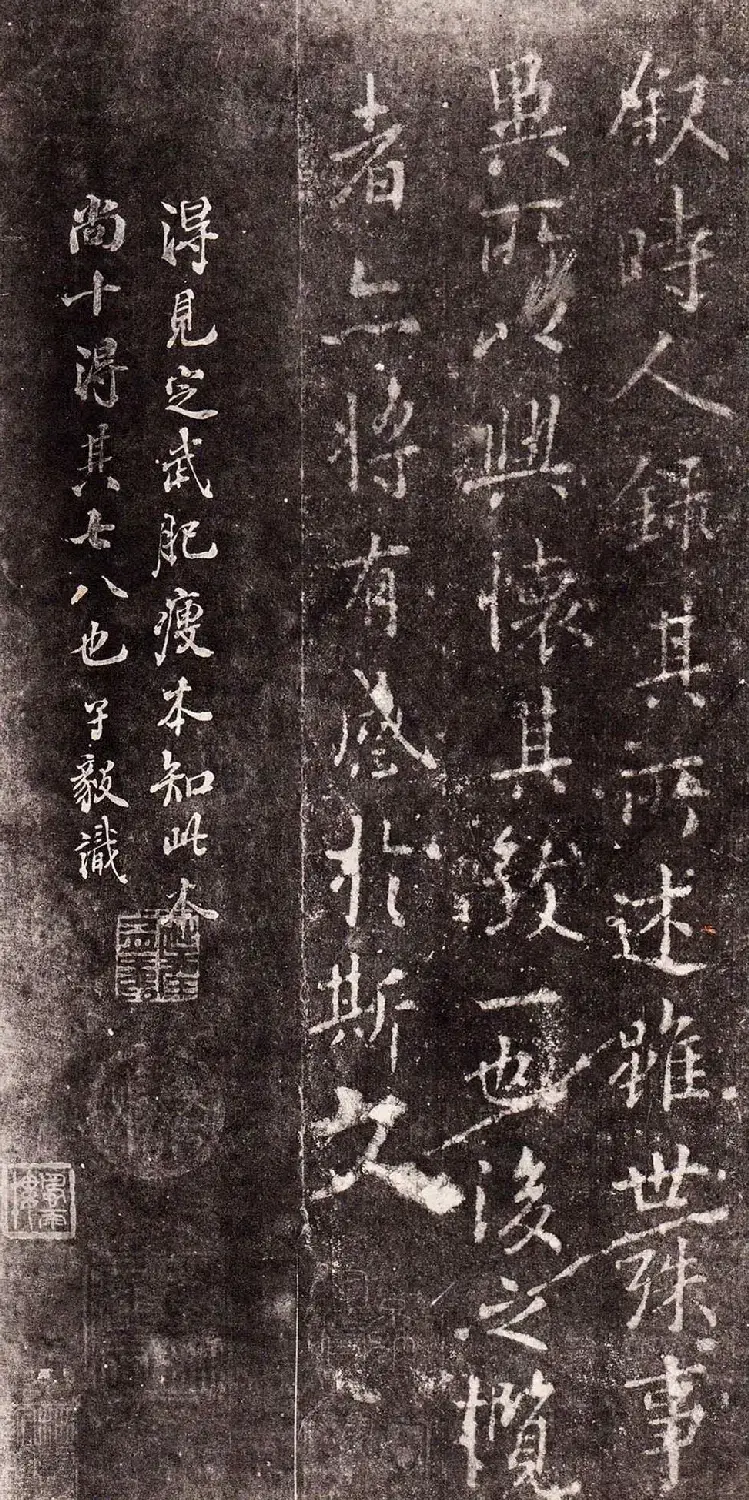 叙時人録其所述雖世殊事
異所以興懷其致一也後之攬
者亦将有感於斯文
得見定武肥瘦本知此本
尚十得其七八也子毅識